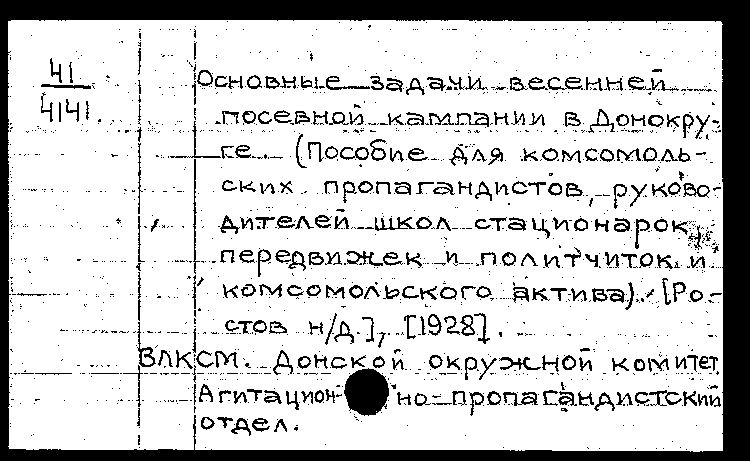 41
4141.
Основные задачи весенней
посевной кампании в Донокру-
ге (Пособие для комсомоль-
ских пропагандистов, руково-
дителей школ стационарок,
передвижек и политчиток и
комсомольского актива). [Ро-
стов н/Д.], [1928].
ВЛКСМ. Донской окружной комитет
Агитацион-но-пропагандистский
отдел.